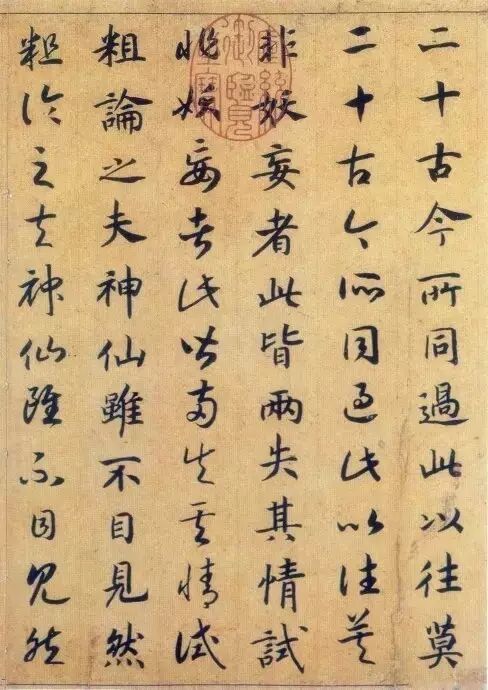 二十古今所同過此以往莫
二十古今所同過此以往莫
非妖妄者此皆兩失其情試
非妖妄者此皆兩失其情試
粗論之夫神仙雖不目見然
粗論之夫神仙雖不目見然